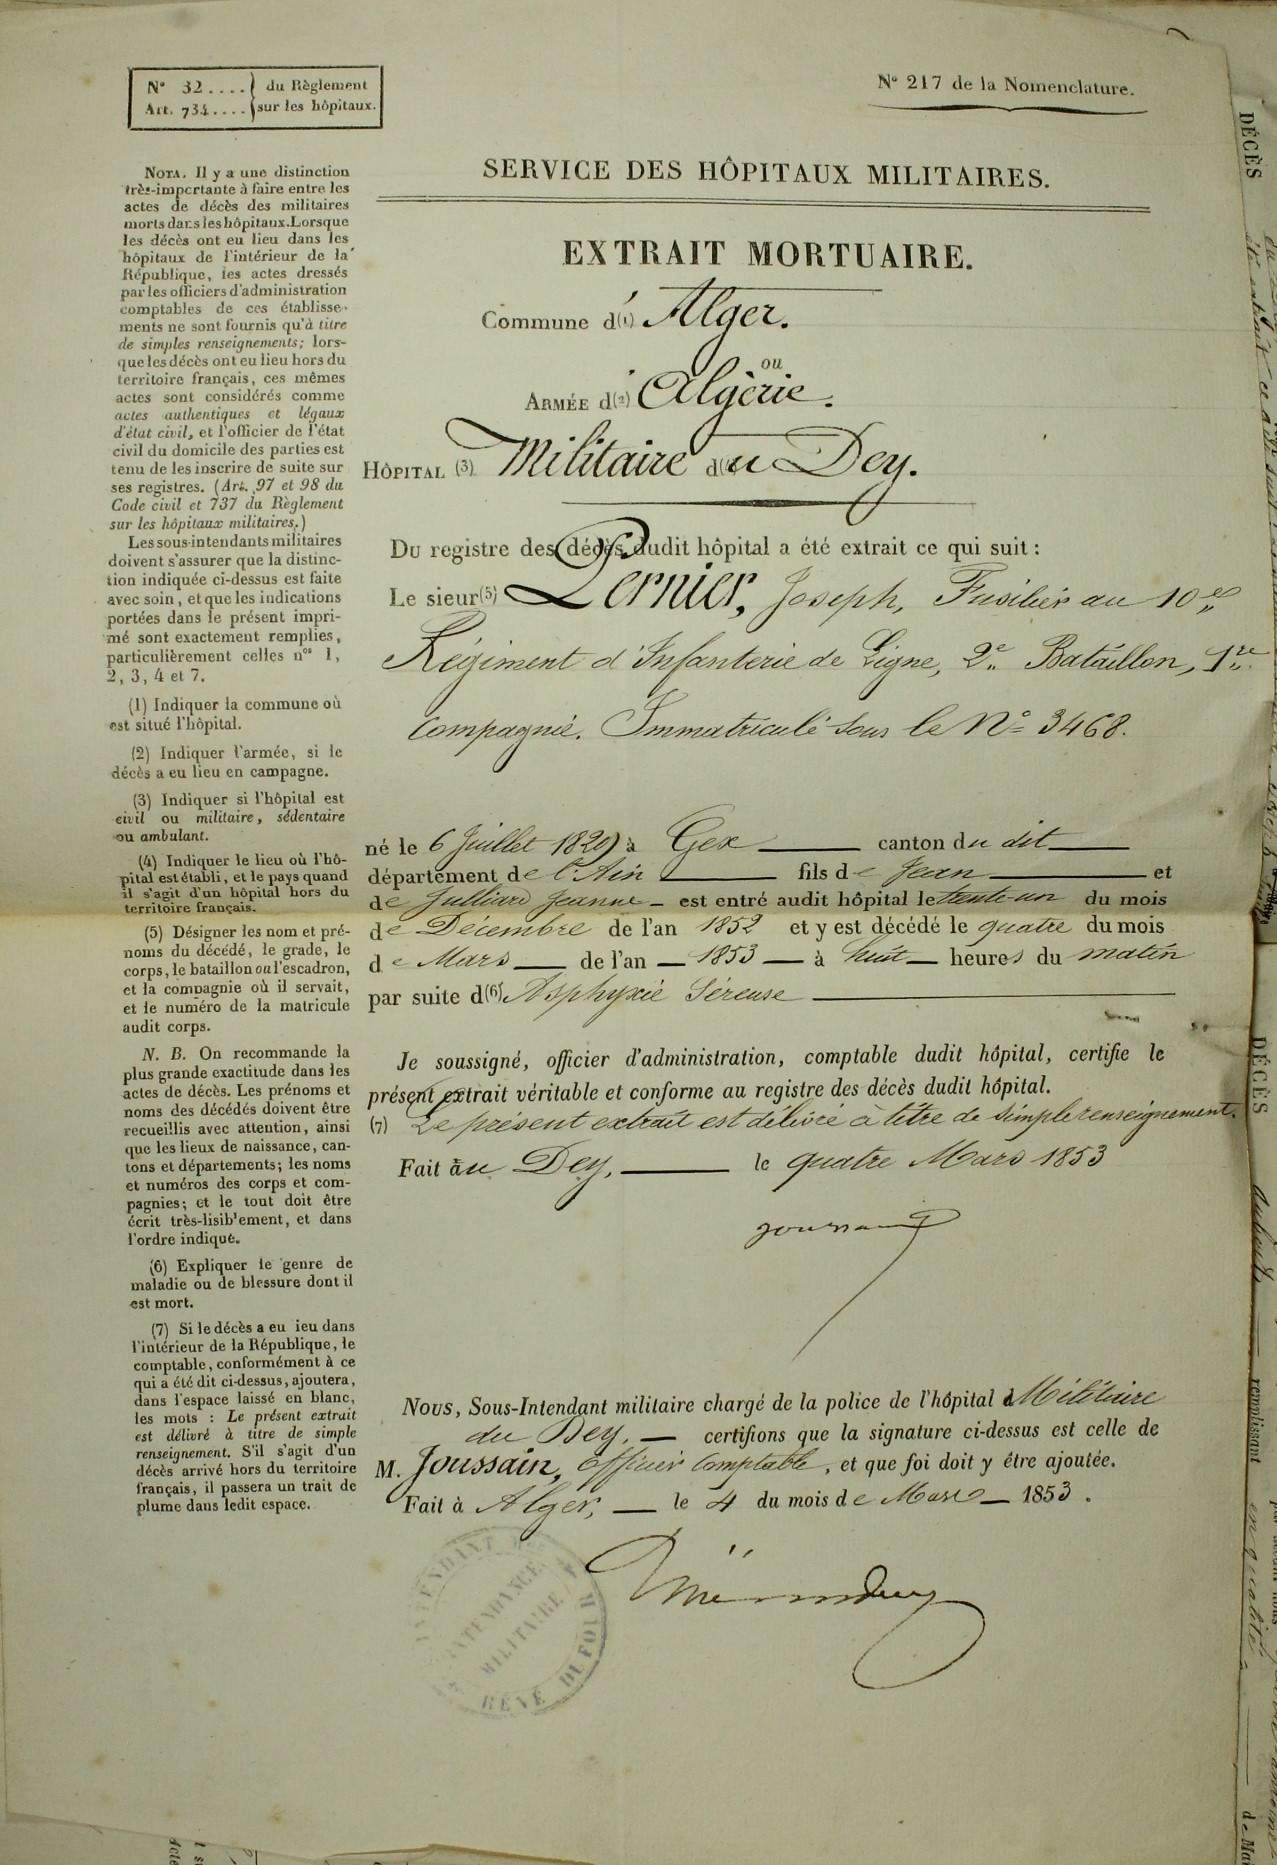 N° 32.... du Règlement
Art. 734.... sur les hôpitaux.
N° 217 de la Nomenclature.
NOTA. Il y a une distinction
très-importante à faire entre les
actes de décès des militaires
morts dans les hôpitaux. Lorsque
les décès ont eu lieu dans les
hôpitaux de l'intérieur de la
République, les actes dressés
par les officiers d'administration
comptables de ces établisse-
ments ne sont fournis qu'à titre
de simples renseignements; lors-
que les décès ont eu lieu hors du
territoire français, ces mêmes
actes sont considérés comme
actes authentiques et légaux
d'état civil, et l'officier de l'état
civil du domicile des parties est
tenu de les inscrire de suite sur
ses registres. (Art. 97 et 98 du
Code civil et 737 du Règlement
sur les hôpitaux militaires.)
Les sous-intendants militaires
doivent s'assurer que la distinc-
tion indiquée ci-dessus est faite
avec soin, et que les indications
portées dans le présent impri-
mé sont exactement remplies,
particulièrement celles nos 1,
2, 3, 4 et 7.
(1) Indiquer la commune où
est situé l'hôpital.
(2) Indiquer l'armée, si le
décès a eu lieu en campagne.
(3) Indiquer si l'hôpital est
civil ou militaire, sédentaire
ou ambulant.
(4) Indiquer le lieu où l'hô-
pital est établi, et le pays quand
il s'agit d'un hôpital hors du
territoire français.
(5) Désigner les nom et pré-
noms du décédé, le grade, le
corps, le bataillon ou l'escadron,
et la compagnie où il servait,
et le numéro de la matricule
audit corps.
N. B. On recommande la
plus grande exactitude dans les
actes de décès. Les prénoms et
noms des décédés doivent être
recueillis avec attention, ainsi
que les lieux de naissance, can-
tons et départements; les noms
et numéros des corps et com-
pagnies; et le tout doit être
écrit très-lisiblement, et dans
l'ordre indiqué.
(6) Expliquer le genre de
maladie ou de blessure dont il
est mort.
(7) Si le décès a eu lieu dans
l'intérieur de la République, le
comptable, conformément à ce
qui a été dit ci-dessus, ajoutera,
dans l'espace laissé en blanc,
les mots : Le présent extrait
est délivré à titre de simple
renseignement. S'il s'agit d'un
décès arrivé hors du territoire
français, il passera un trait de
plume dans ledit espace.
SERVICE DES HÔPITAUX MILITAIRES.
EXTRAIT MORTUAIRE.
Commune d'(1) Alger.
ou
ARMÉE d'(2) Algérie.
HÔPITAL (3) Militaire du Dey.
Du registre des décès dudit hôpital a été extrait ce qui suit :
Le sieur (5) Pernier, Joseph, Fusilier au 10e
Régiment d'Infanterie de Ligne, 2e Bataillon, 1re
Compagnie. Immatriculé sous le N° 3468.
né le 6 Juillet 1829 à Gex canton du dit
département de l'Ain fils de Jean et
de Julliard Jeanne est entré audit hôpital le trente-un du mois
de Décembre de l'an 1852 et y est décédé le quatre du mois
de Mars de l'an 1853 à huit heures du matin
par suite d(6) Asphyxie Séreuse
Je soussigné, officier d'administration, comptable dudit hôpital, certifie le
présent extrait véritable et conforme au registre des décès dudit hôpital.
(7) Le présent extrait est délivré à titre de simple renseignement.
Fait au Dey, le quatre Mars 1853
Joussain
NOUS, Sous-Intendant militaire chargé de la police de l'hôpital Militaire
du Dey, certifions que la signature ci-dessus est celle de
M. Joussain, Officier Comptable, et que foi doit y être ajoutée.
Fait à Alger, le 4 du mois de Mars 1853.
INTENDANCE
MILITAIRE
RENÉ DUFOUR
DÉCÈS
DÉCÈS
remplissant
en qualité